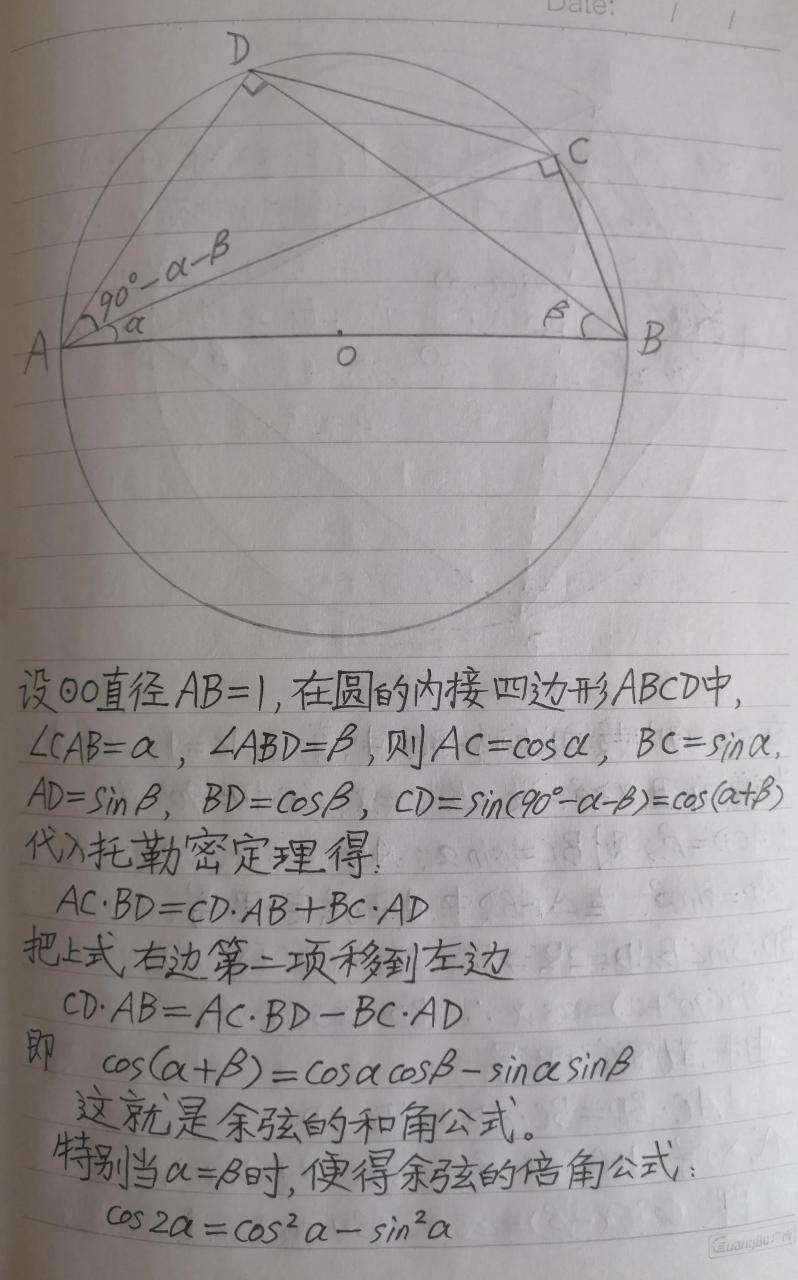 Date: / /
D
C
90°-α-β
α
β
A
O
B
设⊙O直径AB=1,在圆的内接四边形ABCD中,
∠CAB=α,∠ABD=β,则AC=cosα,BC=sinα,
AD=sinβ,BD=cosβ,CD=sin(90°-α-β)=cos(α+β)
代入托勒密定理得:
AC·BD=CD·AB+BC·AD
把上式右边第二项移到左边
CD·AB=AC·BD-BC·AD
即 cos(α+β)=cosαcosβ-sinαsinβ
这就是余弦的和角公式。
特别当α=β时,便得余弦的倍角公式:
cos2α=cos²α-sin²α
GuangBo广博